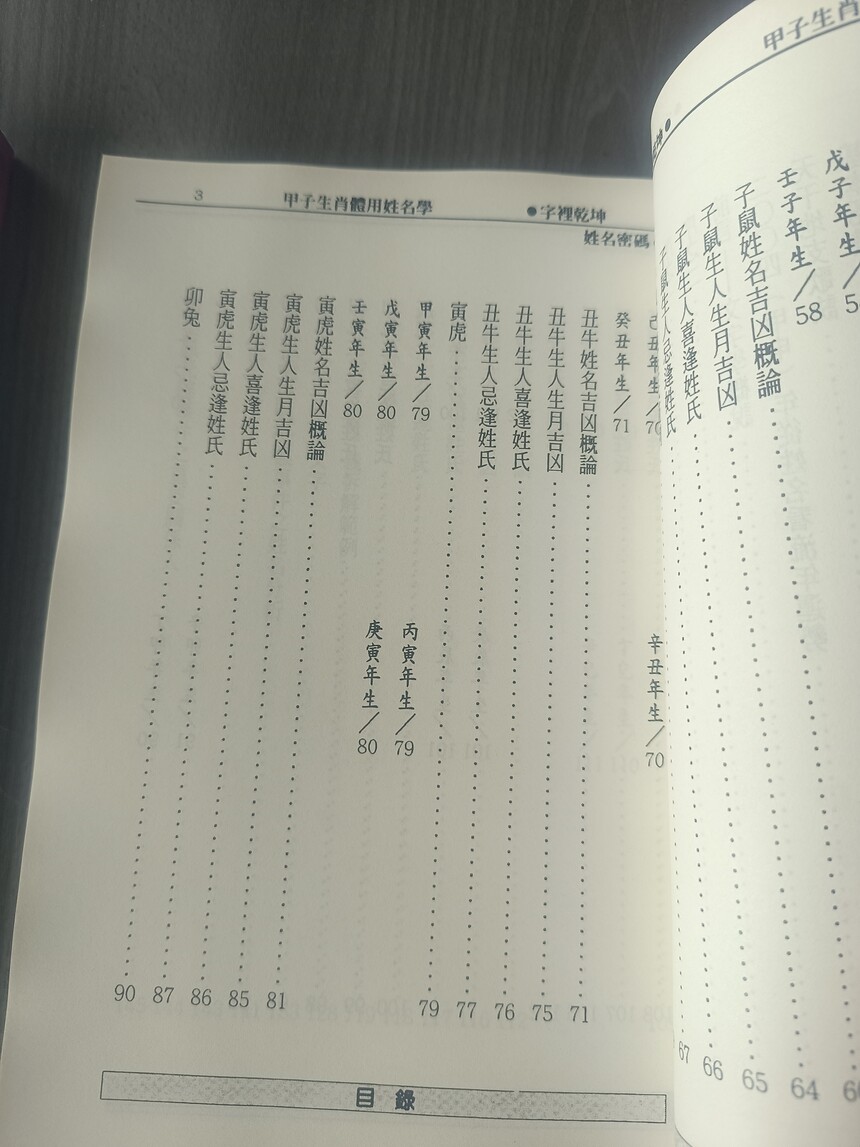 甲子生肖
戊子年生／5
壬子年生／58
子鼠姓名吉凶概論⋯⋯⋯⋯64
子鼠生人生月吉凶⋯⋯⋯⋯65
子鼠生人喜逢姓氏⋯⋯⋯⋯66
子鼠生人忌逢姓氏⋯⋯⋯⋯67
●字裡乾坤
姓名密碼
甲子生肖體用姓名學
3
己丑年生／70
辛丑年生／70
癸丑年生／71
丑牛姓名吉凶概論⋯⋯⋯⋯71
丑牛生人生月吉凶⋯⋯⋯⋯75
丑牛生人喜逢姓氏⋯⋯⋯⋯76
丑牛生人忌逢姓氏⋯⋯⋯⋯77
寅虎⋯⋯⋯⋯79
甲寅年生／79
丙寅年生／79
戊寅年生／80
庚寅年生／80
壬寅年生／80
寅虎姓名吉凶概論⋯⋯⋯⋯81
寅虎生人生月吉凶⋯⋯⋯⋯85
寅虎生人喜逢姓氏⋯⋯⋯⋯86
寅虎生人忌逢姓氏⋯⋯⋯⋯87
卯兔⋯⋯⋯⋯90
目錄